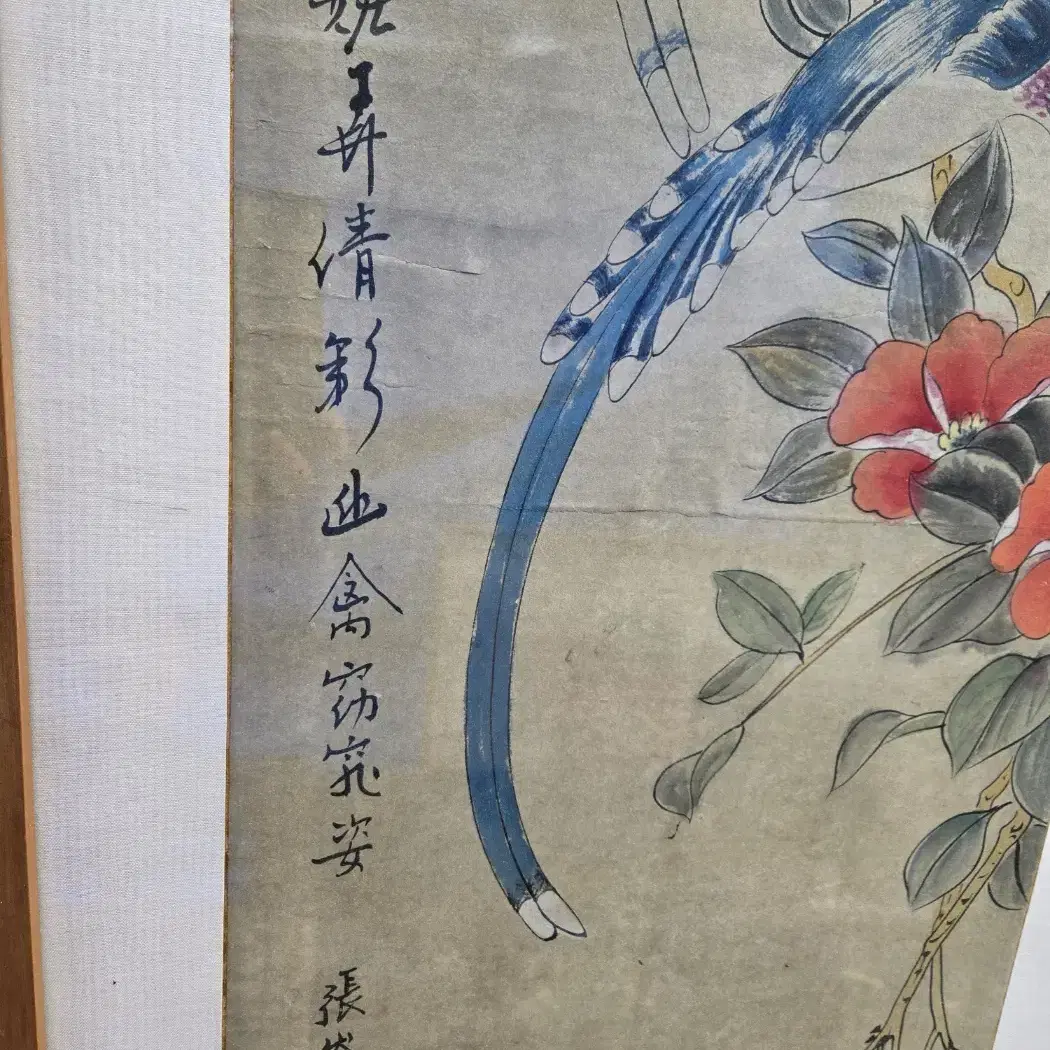 弄倩影幽禽窈窕姿
張